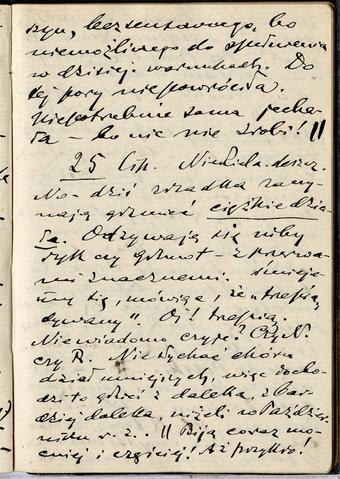 szyn, bezsensownego, bo
niemożliwego do spełnienia
w dzisiej. warunkach. Do
tej pory nie powróciła.
Niepotrzebnie sama jecha-
ła – bo nic nie zrobi! ||
25 Lip. Niedziela. deszcz.
No – dziś zrzadka zaczy-
nają grzmieć ciężkie dzia-
ła. Odzywają się niby
ryk czy grzmot – z przerwa-
mi znacznemi. Śmieje-
my się, mówiąc, że „trzepią
dywany". Oj! trzepią.
Niewiadomo czyje? Czy N.
czy R. Nie słychać chóru
dział mniejszych, więc docho-
dzi to gdzieś z daleka, z bar-
dziej daleka, niżeli w Paździer-
niku r. z. . || Biją coraz mo-
cniej i częściej! Aż przykro!